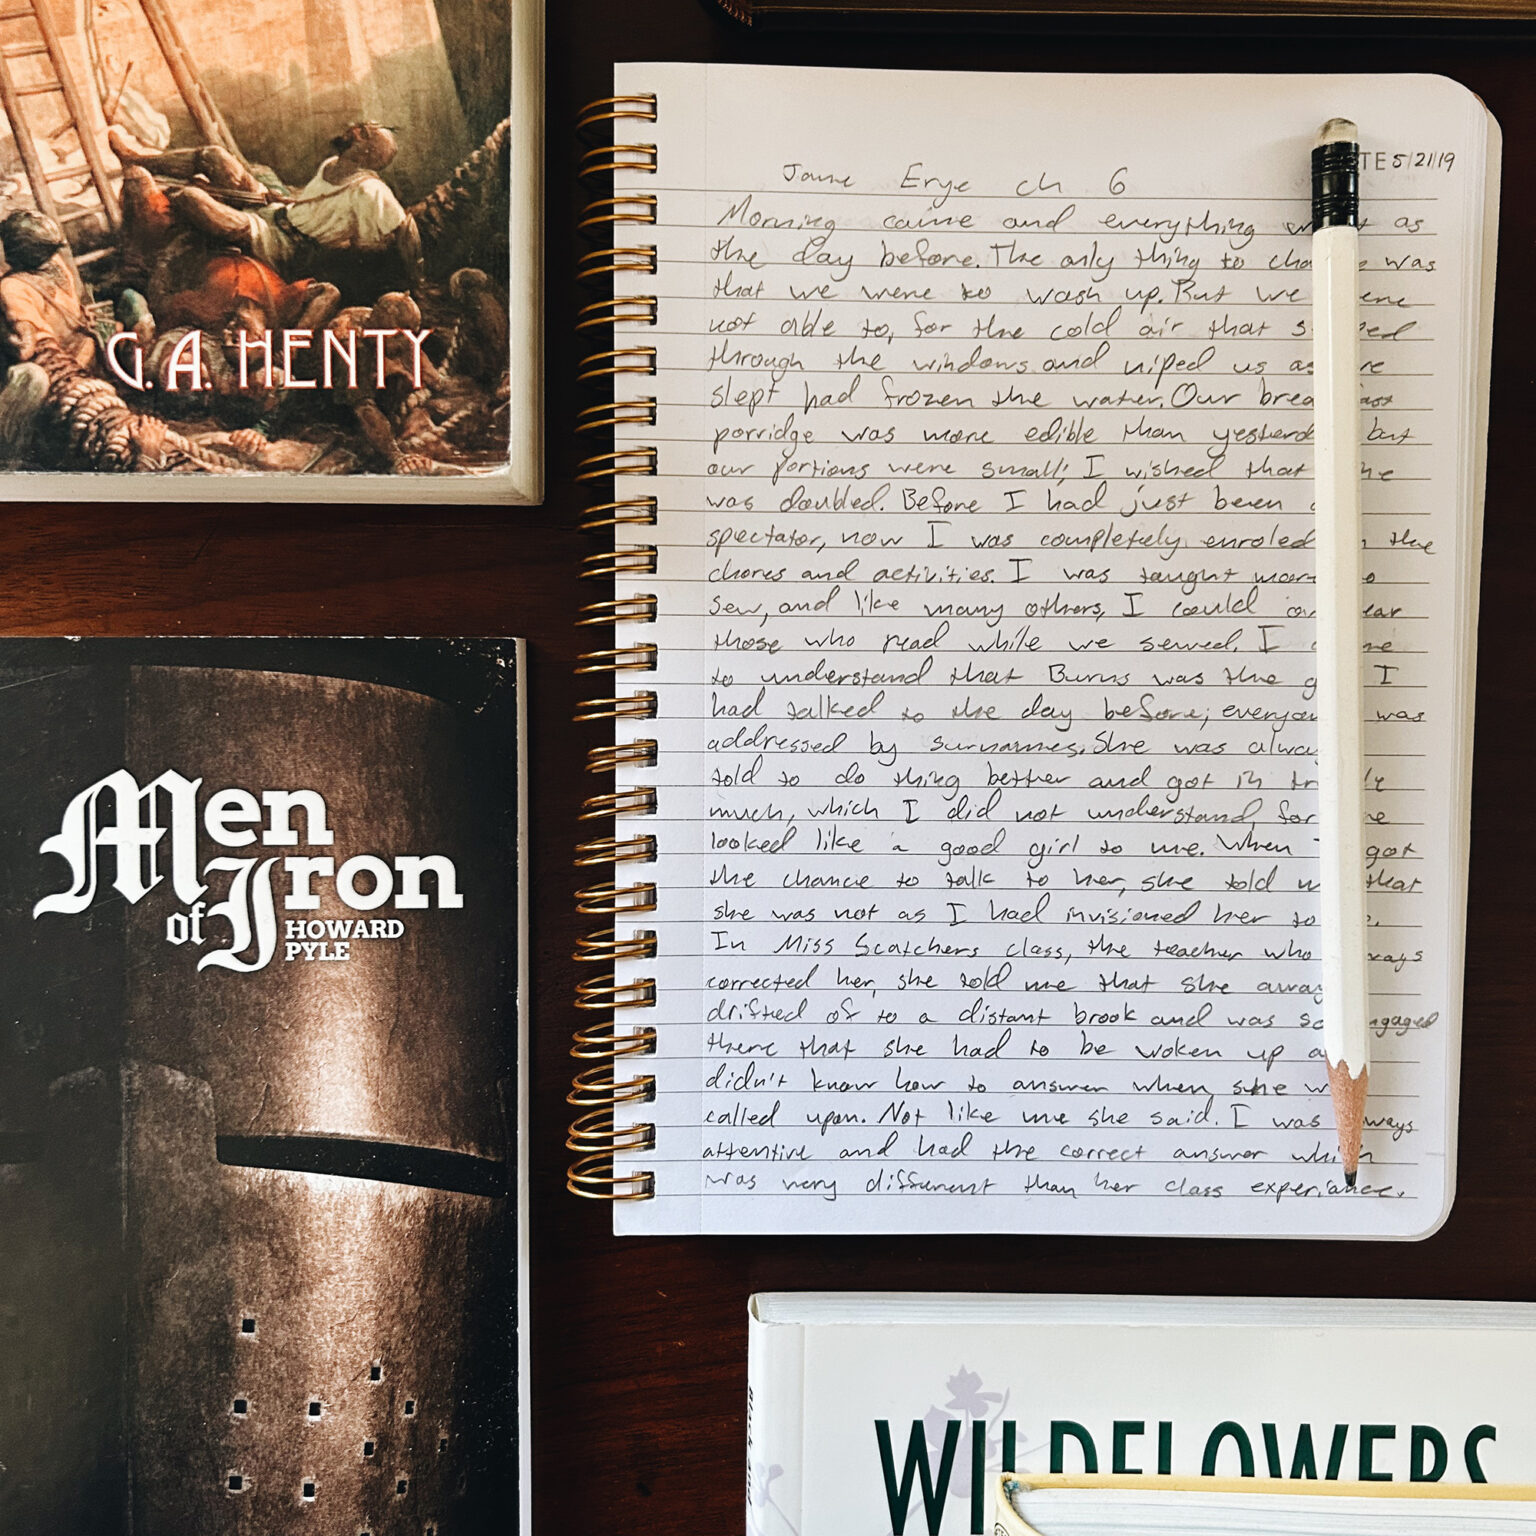 G. A. HENTY
Men
of Iron
HOWARD
PYLE
DATE 5/21/19
Jane Erye ch 6
Morning came and everything as
the day before. The only thing to was
that we were to wash up. But we
not able to, for the cold air that
through the windows and niped us as
slept had frozen the water. Our
porridge was more edible than but
our portions were small; I wished that
was doubled. Before I had just been
spectator, now I was completely enroled the
chores and activities. I was taught
sew, and like many others, I could
those who read while we sewed. I
to understand that Burns was the I
had talked to the day before; was
addressed by surnames. She was
told to do thing better and got in
much, which I did not understand, for
looked like a good girl to me. When got
the chance to talk to her, she told that
she was not as I had invisioned her to
In Miss Scatchers class, the teacher who
corrected her, she told me that she
drifted of to a distant brook and was
there that she had to be woken up
didn't know how to answer when she
called upon. Not like me she said. I was
attentive and had the correct answer which
was very different than her class experiance.
WILDFLOWERS